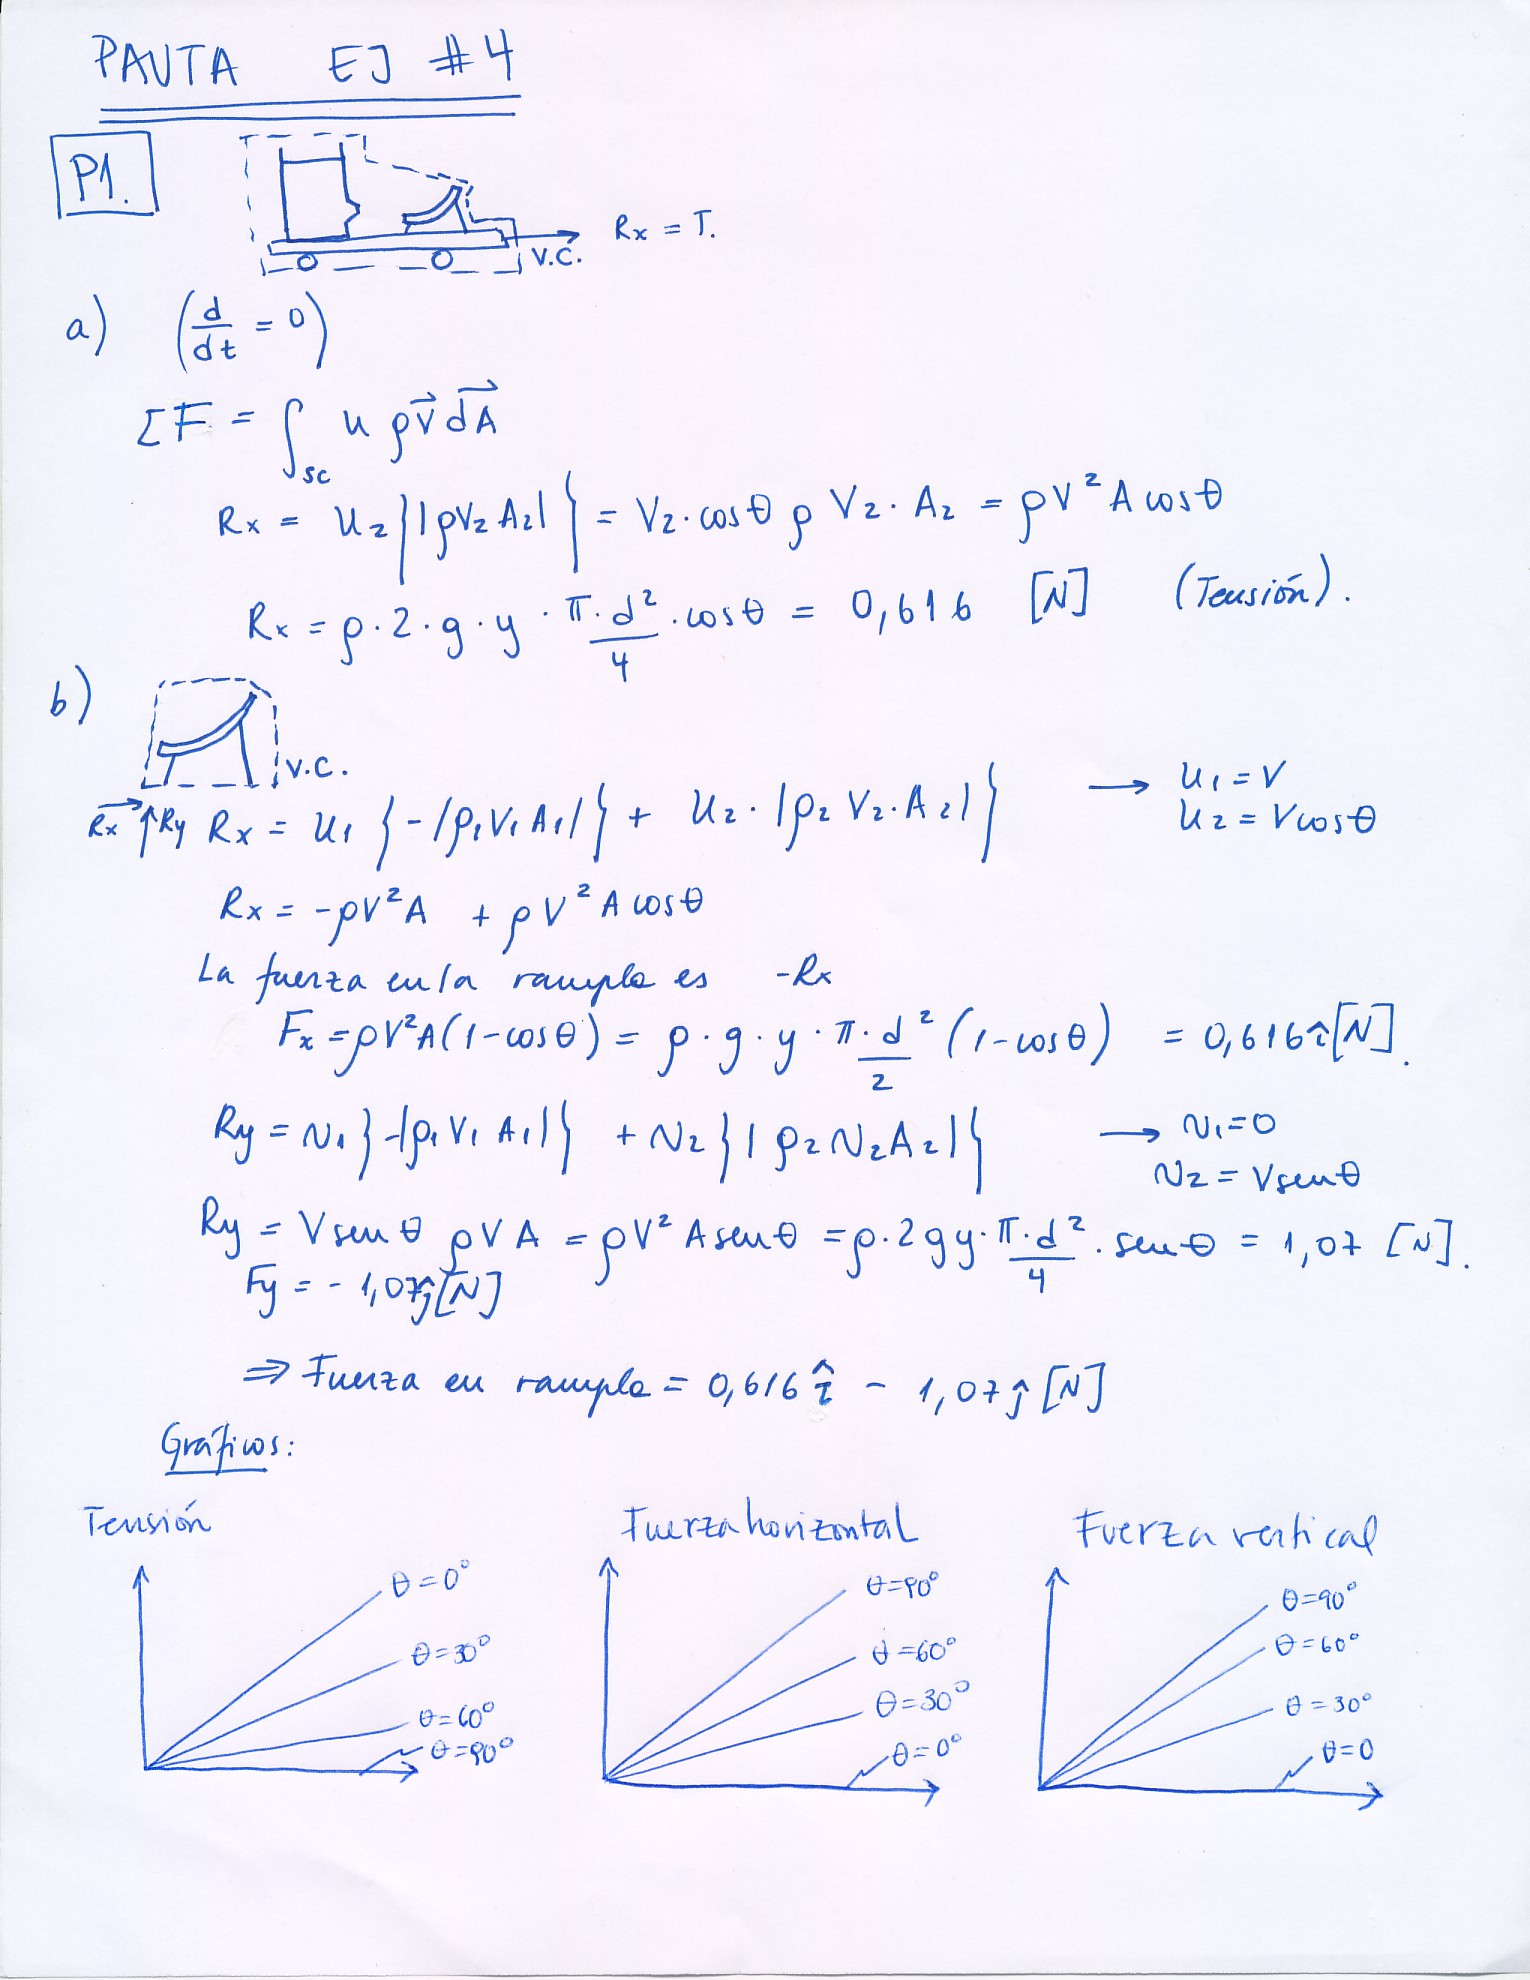 PAUTA EJ #4
P1.
Rx = T.
V.C.
a) (d/dt = 0)
ΣF = ∫sc u ρv⃗ dA⃗
Rx = u2 {|ρV2 A2|} = V2·cosθ ρ V2·A2 = ρV² A cosθ
Rx = ρ·2·g·y·π·d²/4·cosθ = 0,616 [N] (Tensión).
b)
V.C.
Rx Ry Rx = u1 {-|ρ1V1A1|} + u2·|ρ2 V2·A2|} → u1 = V
u2 = Vcosθ
Rx = -ρV²A + ρV²A cosθ
La fuerza en la rampla es -Rx
Fx = ρV²A(1-cosθ) = ρ·g·y·π·d²/2 (1-cosθ) = 0,616 î [N].
Ry = v1 {-|ρ1 V1 A1|} + v2 {|ρ2 v2 A2|} → v1=0
v2 = Vsenθ
Ry = V senθ ρVA = ρV² A senθ = ρ·2gy·π·d²/4·senθ = 1,07 [N].
Fy = -1,07ĵ [N]
⇒ Fuerza en rampla = 0,616 î - 1,07 ĵ [N]
Gráficos:
Tensión
θ=0°
θ=30°
θ=60°
θ=90°
Fuerza horizontal
θ=90°
θ=60°
θ=30°
θ=0°
Fuerza vertical
θ=90°
θ=60°
θ=30°
θ=0